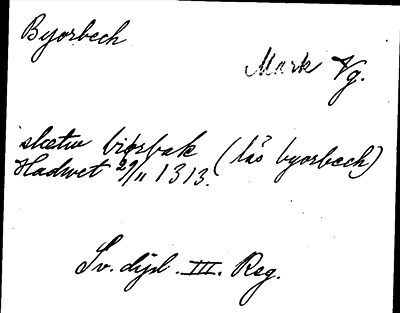 Byorbech
Mark Vg.
slætin biorbak (läs byorbech)
Hadwet 29/11 1313.
Sv. dipl. III. Reg.